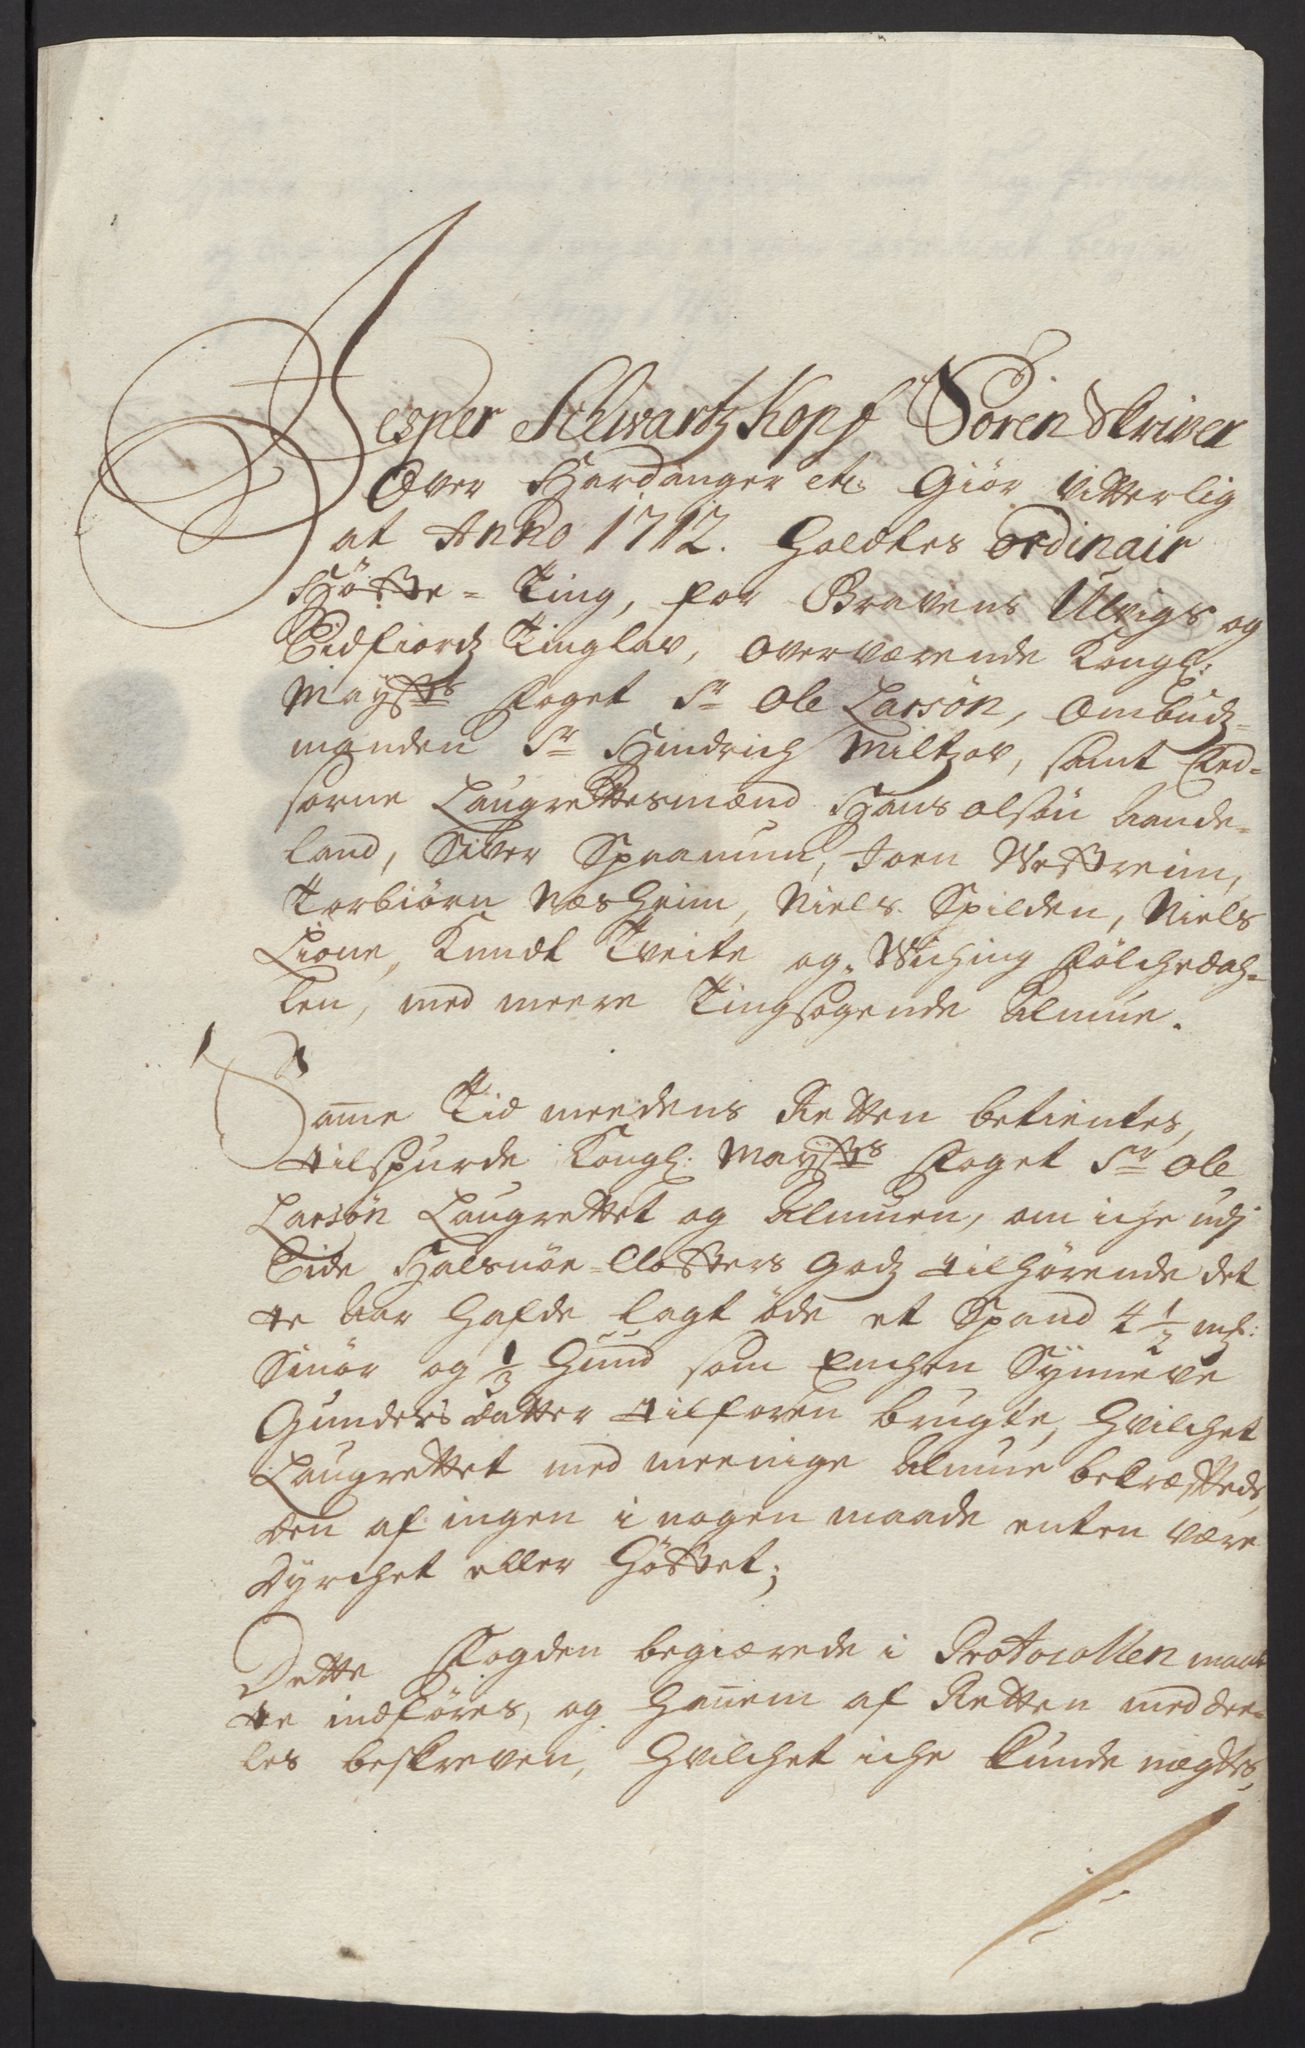 Jesper Schwartzkopf Soren Skriver
Over Hardanger etc. Giör vitterlig
at Anno 1712. Holdtes Ordinair
Höste-Ting, for Gravens Ulvigs og
Eidfiordz Tinglav, overværende Kongl:
Maysts Foget Sr Ole Larsön, Ombudz-
manden Sr Hindrich Miltzov, samt Eed-
sorne Laugrettesmænd Hans Olsön Aande-
land, Siver Spaanum, Joen Westreim,
Torbiörn Næsheim, Niels Spilden, Niels
Lione, Knudt Tveite og Wiching Fölchedah-
len, med meere Tingsøgende Almue.
Samme Tid meedens Retten betientes,
tilspurde Kongl: Maysts Foget Sr Ole
Larsön Laugrettet og Almuen, om iche udj
Eide Halsnöe Closters Godz tilhörende det
te Aar hafde lagt öde et Spand 4 1/2 mk:
Smör og 1/3 Hud som Enchen Synneve
Gundersdatter tilforen brugte, hvilchet
Laugrettet med meenige Almue bekræftede,
den af ingen i nogen maade enten være
dyrchet eller höstet;
Dette Fogden begiærede i Protocollen maat
te indföres, og hannem af Retten meddee-
les beskreven, hvilchet iche kunde nægtes,